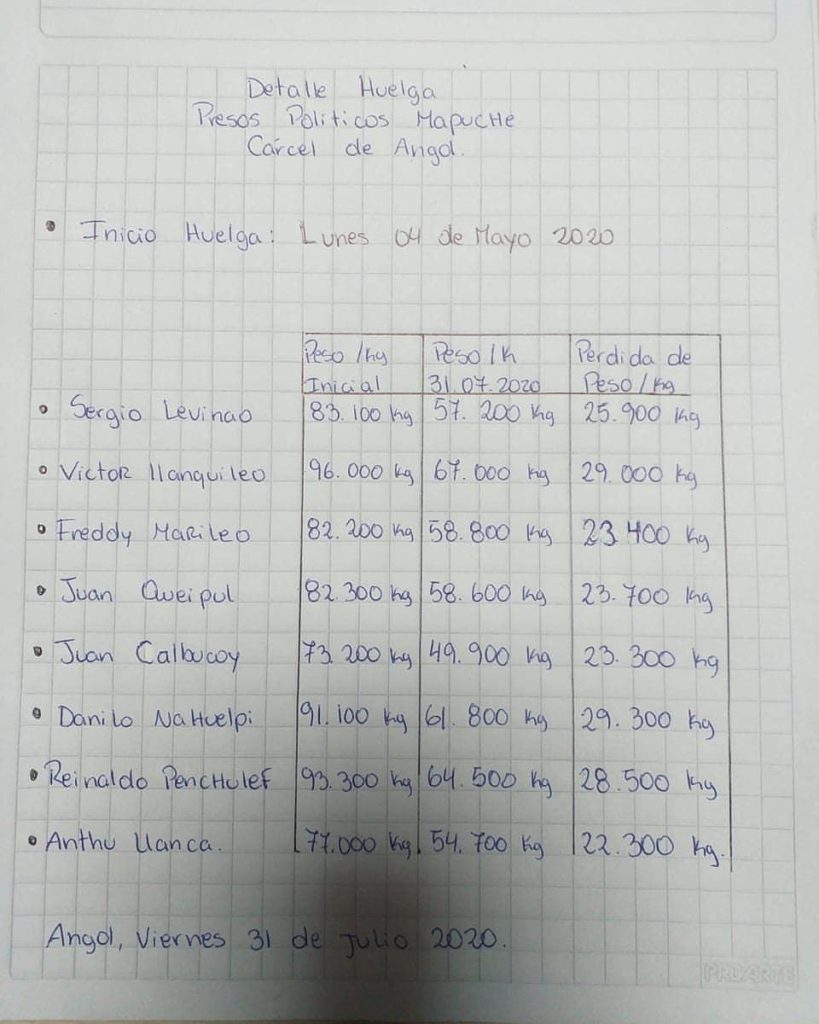 Detalle Huelga
Presos Politicos Mapuche
Cárcel de Angol.
• Inicio Huelga: Lunes 04 de Mayo 2020
Peso/kg Inicial Peso/K 31.07.2020 Perdida de Peso/kg
• Sergio Levinao 83.100 kg 57.200 kg 25.900 kg
• Victor llanquileo 96.000 kg 67.000 kg 29.000 kg
• Freddy Marileo 82.200 kg 58.800 kg 23.400 kg
• Juan Queipul 82.300 kg 58.600 kg 23.700 kg
• Juan Calbucoy 73.200 kg 49.900 kg 23.300 kg
• Danilo Nahuelpi 91.100 kg 61.800 kg 29.300 kg
• Reinaldo Penchulef 93.300 kg 64.500 kg 28.500 kg
• Anthu llanca. 77.000 kg. 54.700 kg 22.300 kg.
Angol, Viernes 31 de Julio 2020.
PROARTE